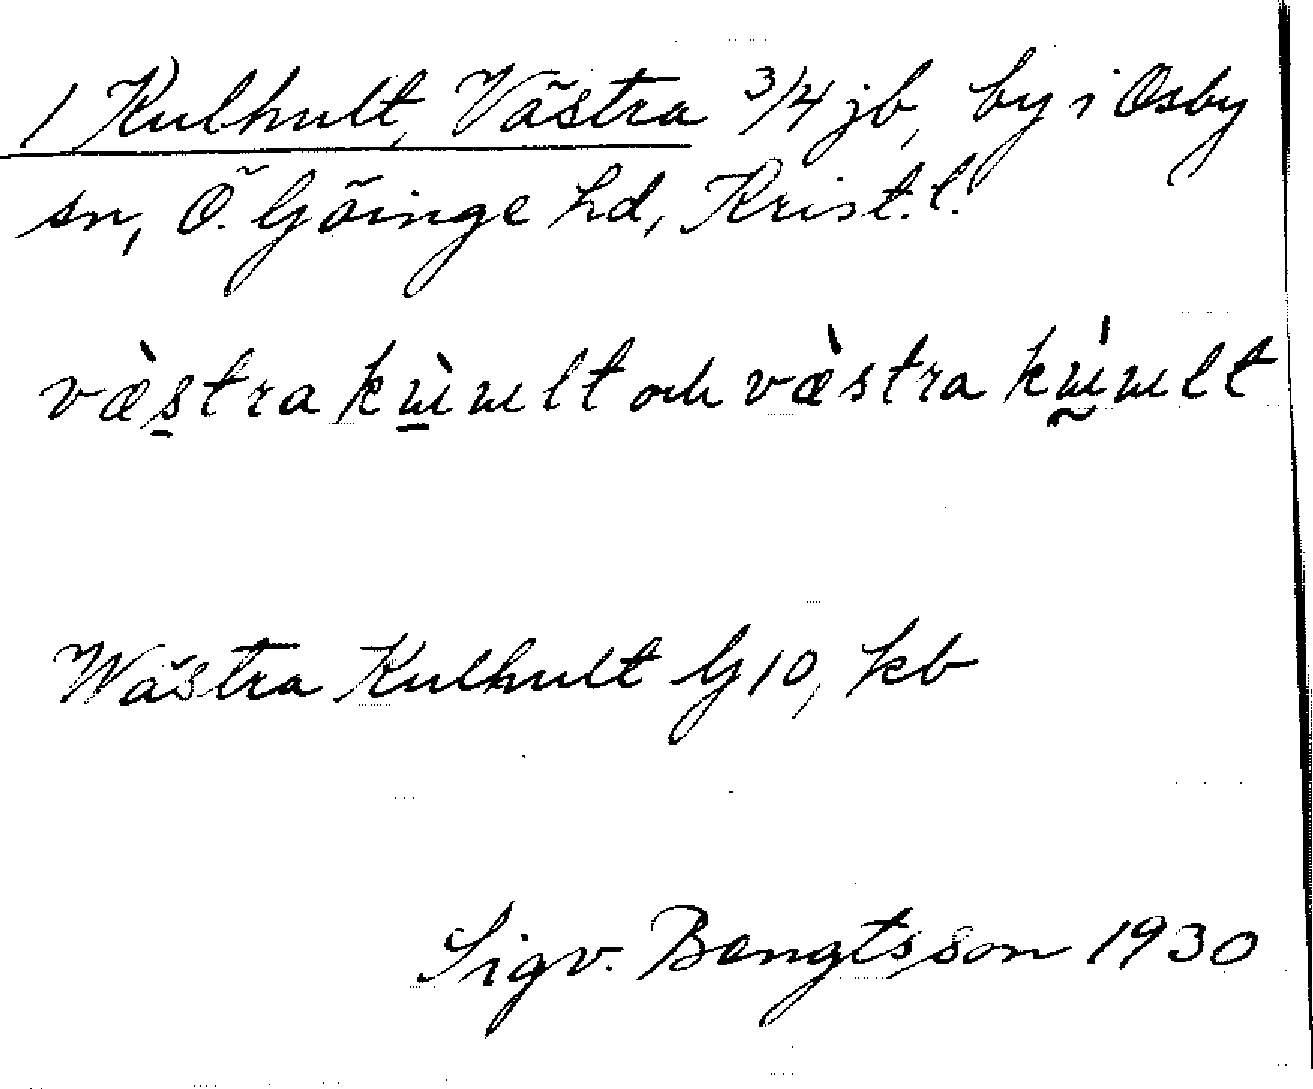 1 Kulhult, Västra 3/4 jb, by i Osby
sn, Ö. Göinge hd, Krist. l.
västra och västra
Wästra Kulhult G10, kb
Sigv. Bengtsson 1930